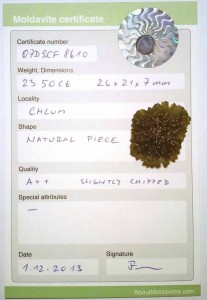 Moldavite certificate
Certificate number
07D8CF8610
Weight, Dimensions
23.50ct 26x21x7mm
Locality
CHLUM
Shape
NATURAL PIECE
Quality
A++ SLIGHTLY CHIPPED
Special attributes
—
Date
Signature
1.12.2013
AboutMoldavites.com